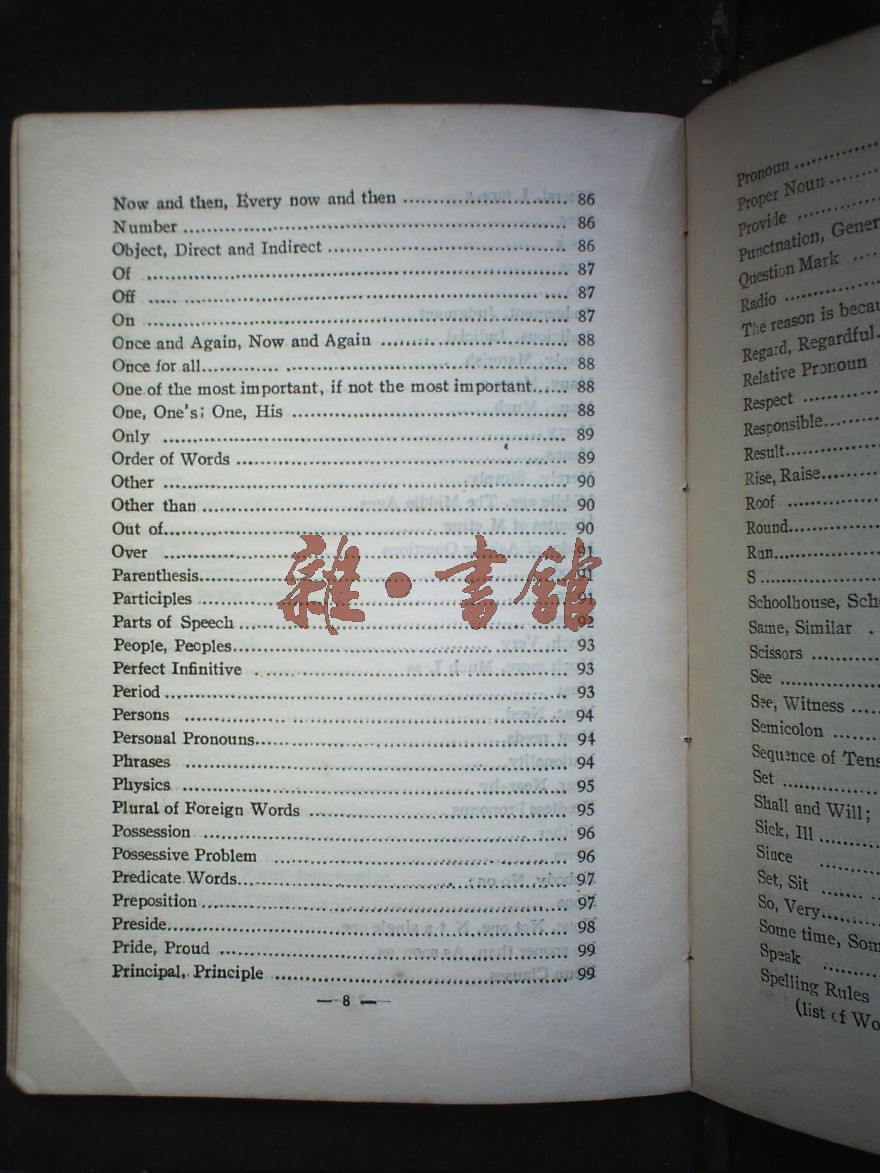 Now and then, Every now and then ........................... 86
Number ........................... 86
Object, Direct and Indirect ........................... 86
Of ........................... 87
Off ........................... 87
On ........................... 87
Once and Again, Now and Again ........................... 88
Once for all ........................... 88
One of the most important, if not the most important...... 88
One, One's; One, His ........................... 88
Only ........................... 89
Order of Words ........................... 89
Other ........................... 90
Other than ........................... 90
Out of ........................... 90
Over ........................... 91
Parenthesis ........................... 91
Participles ........................... 91
Parts of Speech ........................... 92
People, Peoples ........................... 93
Perfect Infinitive ........................... 93
Period ........................... 93
Persons ........................... 94
Personal Pronouns ........................... 94
Phrases ........................... 94
Physics ........................... 95
Plural of Foreign Words ........................... 95
Possession ........................... 96
Possessive Problem ........................... 96
Predicate Words ........................... 97
Preposition ........................... 97
Preside ........................... 98
Pride, Proud ........................... 99
Principal, Principle ........................... 99
— 8 —
雜·書館
Pronoun ...........
Proper Noun ........
Provide ...........
Punctnation, Gener
Question Mark ....
Radio ...........
The reason is becau
Regard, Regardful.
Relative Pronoun
Respect ...........
Responsible........
Result...........
Rise, Raise........
Roof ...........
Round...........
Run...........
S ...........
Schoolhouse, Sch
Same, Similar .
Scissors ...........
See ...........
See, Witness ....
Semicolon ........
Sequence of Tens
Set ...........
Shall and Will;
Sick, Ill ........
Since ........
Set, Sit ........
So, Very........
Some time, Som
Speak ........
Spelling Rules
(list of Wo